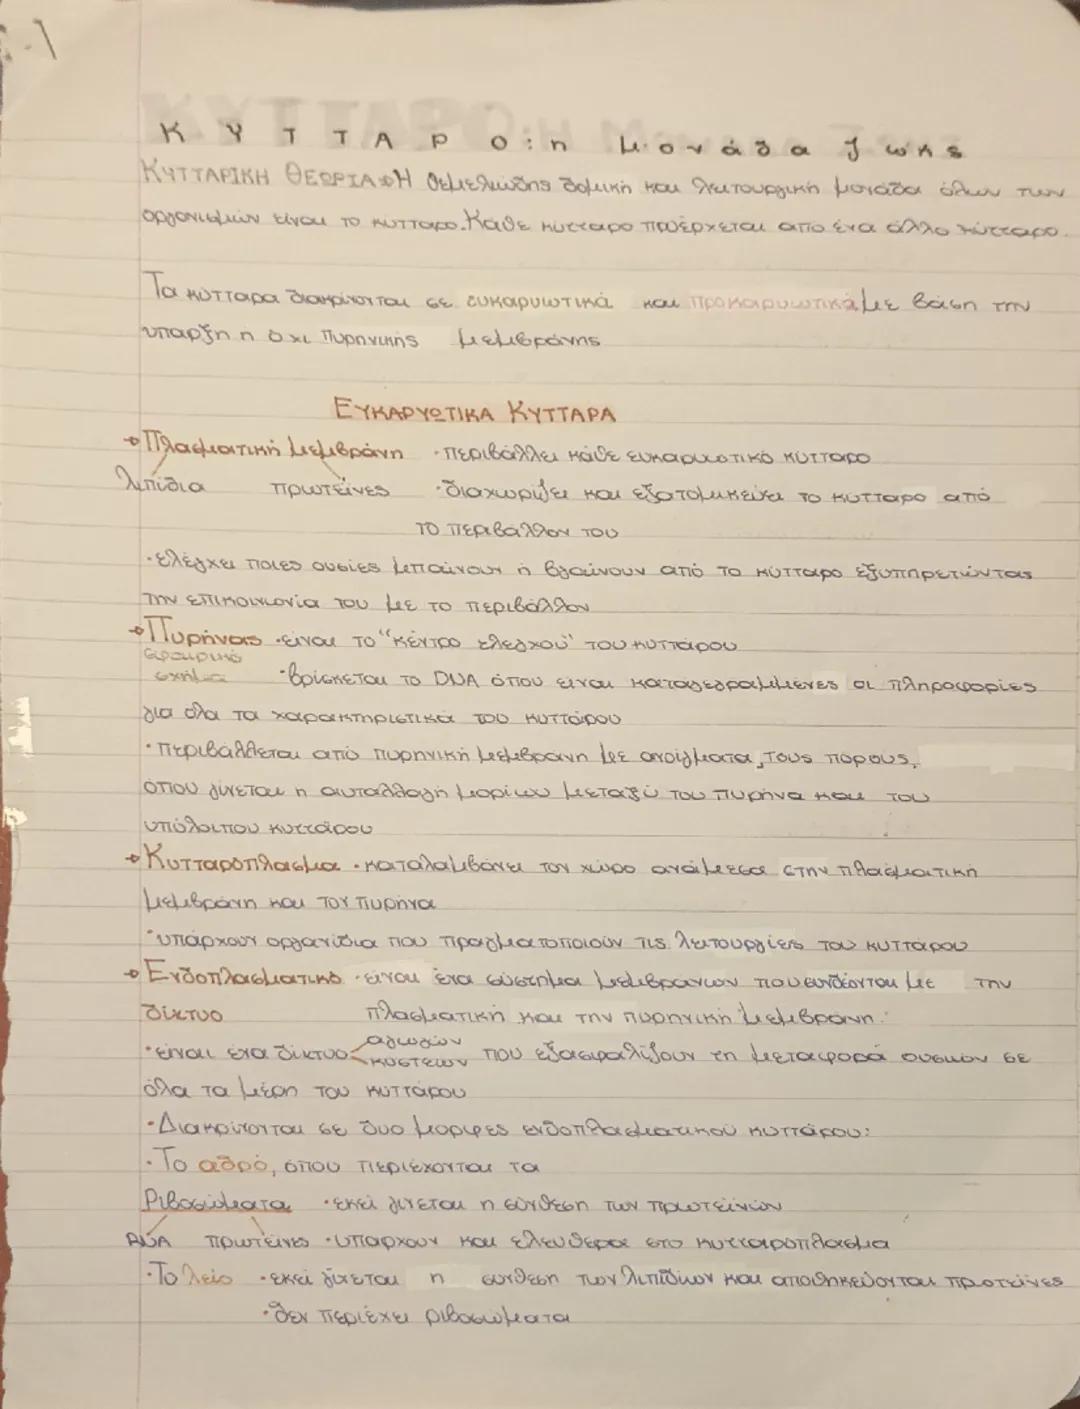 ΚΥΤΤΑΡΟ: η μονάδα ζωής
ΚΥΤΤΑΡΙΚΗ ΘΕΩΡΙΑ→Η θεμελιώδης δομική και λειτουργική μονάδα όλων των
οργανισμών είναι το κύτταρο. Κάθε κύτταρο προέρχεται από ένα άλλο κύτταρο.
Τα κύτταρα διακρίνονται σε ευκαρυωτικά και προκαρυωτικά με βάση την
υπαρξη η όχι πυρηνικής μεμβράνης
ΕΥΚΑΡΥΩΤΙΚΑ ΚΥΤΤΑΡΑ
→Πλασματική μεμβράνη • περιβάλλει κάθε ευκαρυωτικό κύτταρο
λιπίδια πρωτεΐνες • διαχωρίζει και εξατομικεύει το κύτταρο από
το περιβάλλον του
• ελέγχει ποιες ουσίες μπαίνουν ή βγαίνουν από το κύτταρο εξυπηρετώντας
την επικοινωνία του με το περιβάλλον
→Πυρήνας • είναι το "κέντρο ελέγχου" του κυττάρου
σφαιρικό
σχήμα • βρίσκεται το DNA όπου είναι καταγεγραμμένες οι πληροφορίες
για όλα τα χαρακτηριστικά του κυττάρου
• περιβάλλεται από πυρηνική μεμβράνη με ανοίγματα, τους πόρους,
όπου γίνεται η ανταλλαγή μορίων μεταξύ του πυρήνα και του
υπόλοιπου κυττάρου
→Κυτταρόπλασμα • καταλαμβάνει τον χώρο ανάμεσα στην πλασματική
μεμβράνη και τον πυρήνα
• υπάρχουν οργανίδια που πραγματοποιούν τις λειτουργίες του κυττάρου
→Ενδοπλασματικό • είναι ένα σύστημα μεμβρανών που συνδέονται με την
δίκτυο πλασματική και την πυρηνική μεμβράνη.
• είναι ένα δίκτυο αγωγών
κύστεων που εξασφαλίζουν τη μεταφορά ουσιών σε
όλα τα μέρη του κυττάρου
• Διακρίνονται σε δυο μορφες ενδοπλασματικού κυττάρου:
• Το αδρό, όπου περιέχονται τα
Ριβοσώματα • εκεί γίνεται η σύνθεση των πρωτεϊνών
RNA πρωτεϊνες • υπαρχουν και ελευθερα στο κυτταρόπλασμα
• Το λείο • εκεί γίνεται η συνθεση των λιπιδίων και αποθηκεύονται πρωτεϊνες
• δεν περιέχει ριβοσώματα